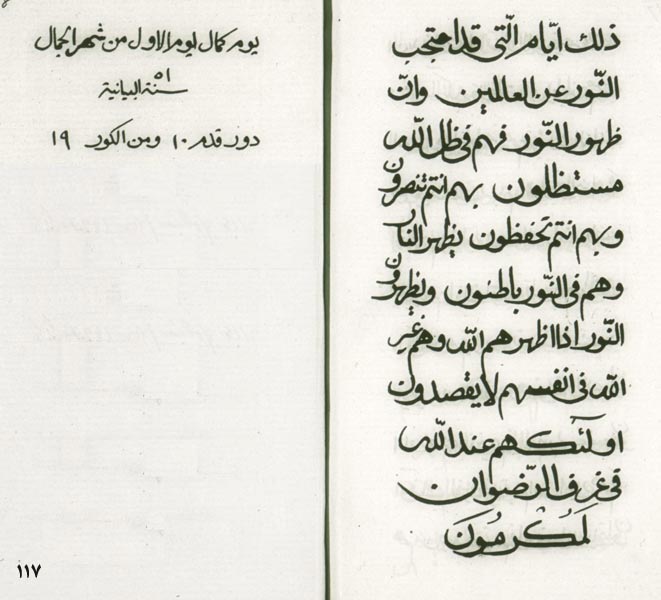 ذلك ايّام الّتى قد احتجب
النّور عن العالمين وانّ
ظهور النّور فهم فى ظل اللّه
مستظلون بهم انتم تنصرون
وبهم انتم تحفظون يظهر النار
وهم فى النّور باطنون ويظهرون
النّور اذا اظهرهم اللّه وهم غير
اللّه فى انفسهم لا يقصدون
اولئك هم عند اللّه
فى غرف الرّضوان
لمكرمون
يوم كمال ليوم الاول من شهر الجمال
سنة ٥١ البيانية
دوز قدم ١٠ ومن الكور ١٩
١١٧